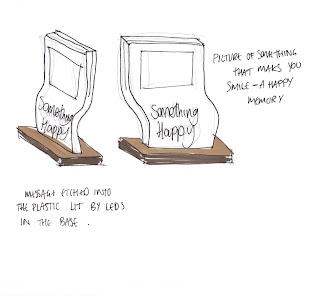 Something
Happy
Something
Happy
PICTURE OF SOMETHING
THAT MAKES YOU
SMILE - A HAPPY
MEMORY
MESSAGE ETCHED INTO
THE PLASTIC LIT BY LEDS
IN THE BASE.